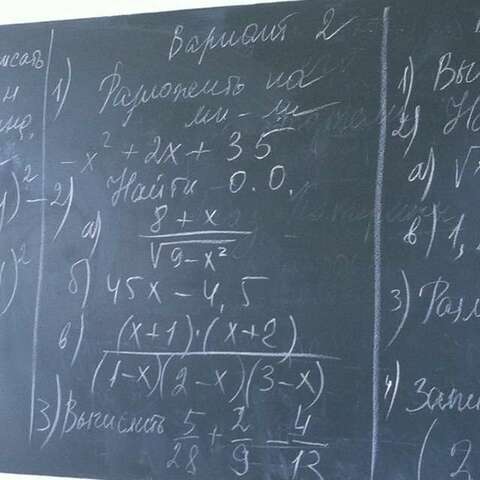 Вариант 2
1) Разложить на
мн-ли
-x² + 2x + 35
2) Найти О.О.
а) (8 + x) / √(9 - x²)
б) 45x - 4,5
в) (x+1)·(x+2) / (1-x)(2-x)(3-x)
3) Вычислить 5/28 + 2/9 - 4/13
1) Вы
2) Н
а) √
в) 1,
3) Раз
4) Запи
(2